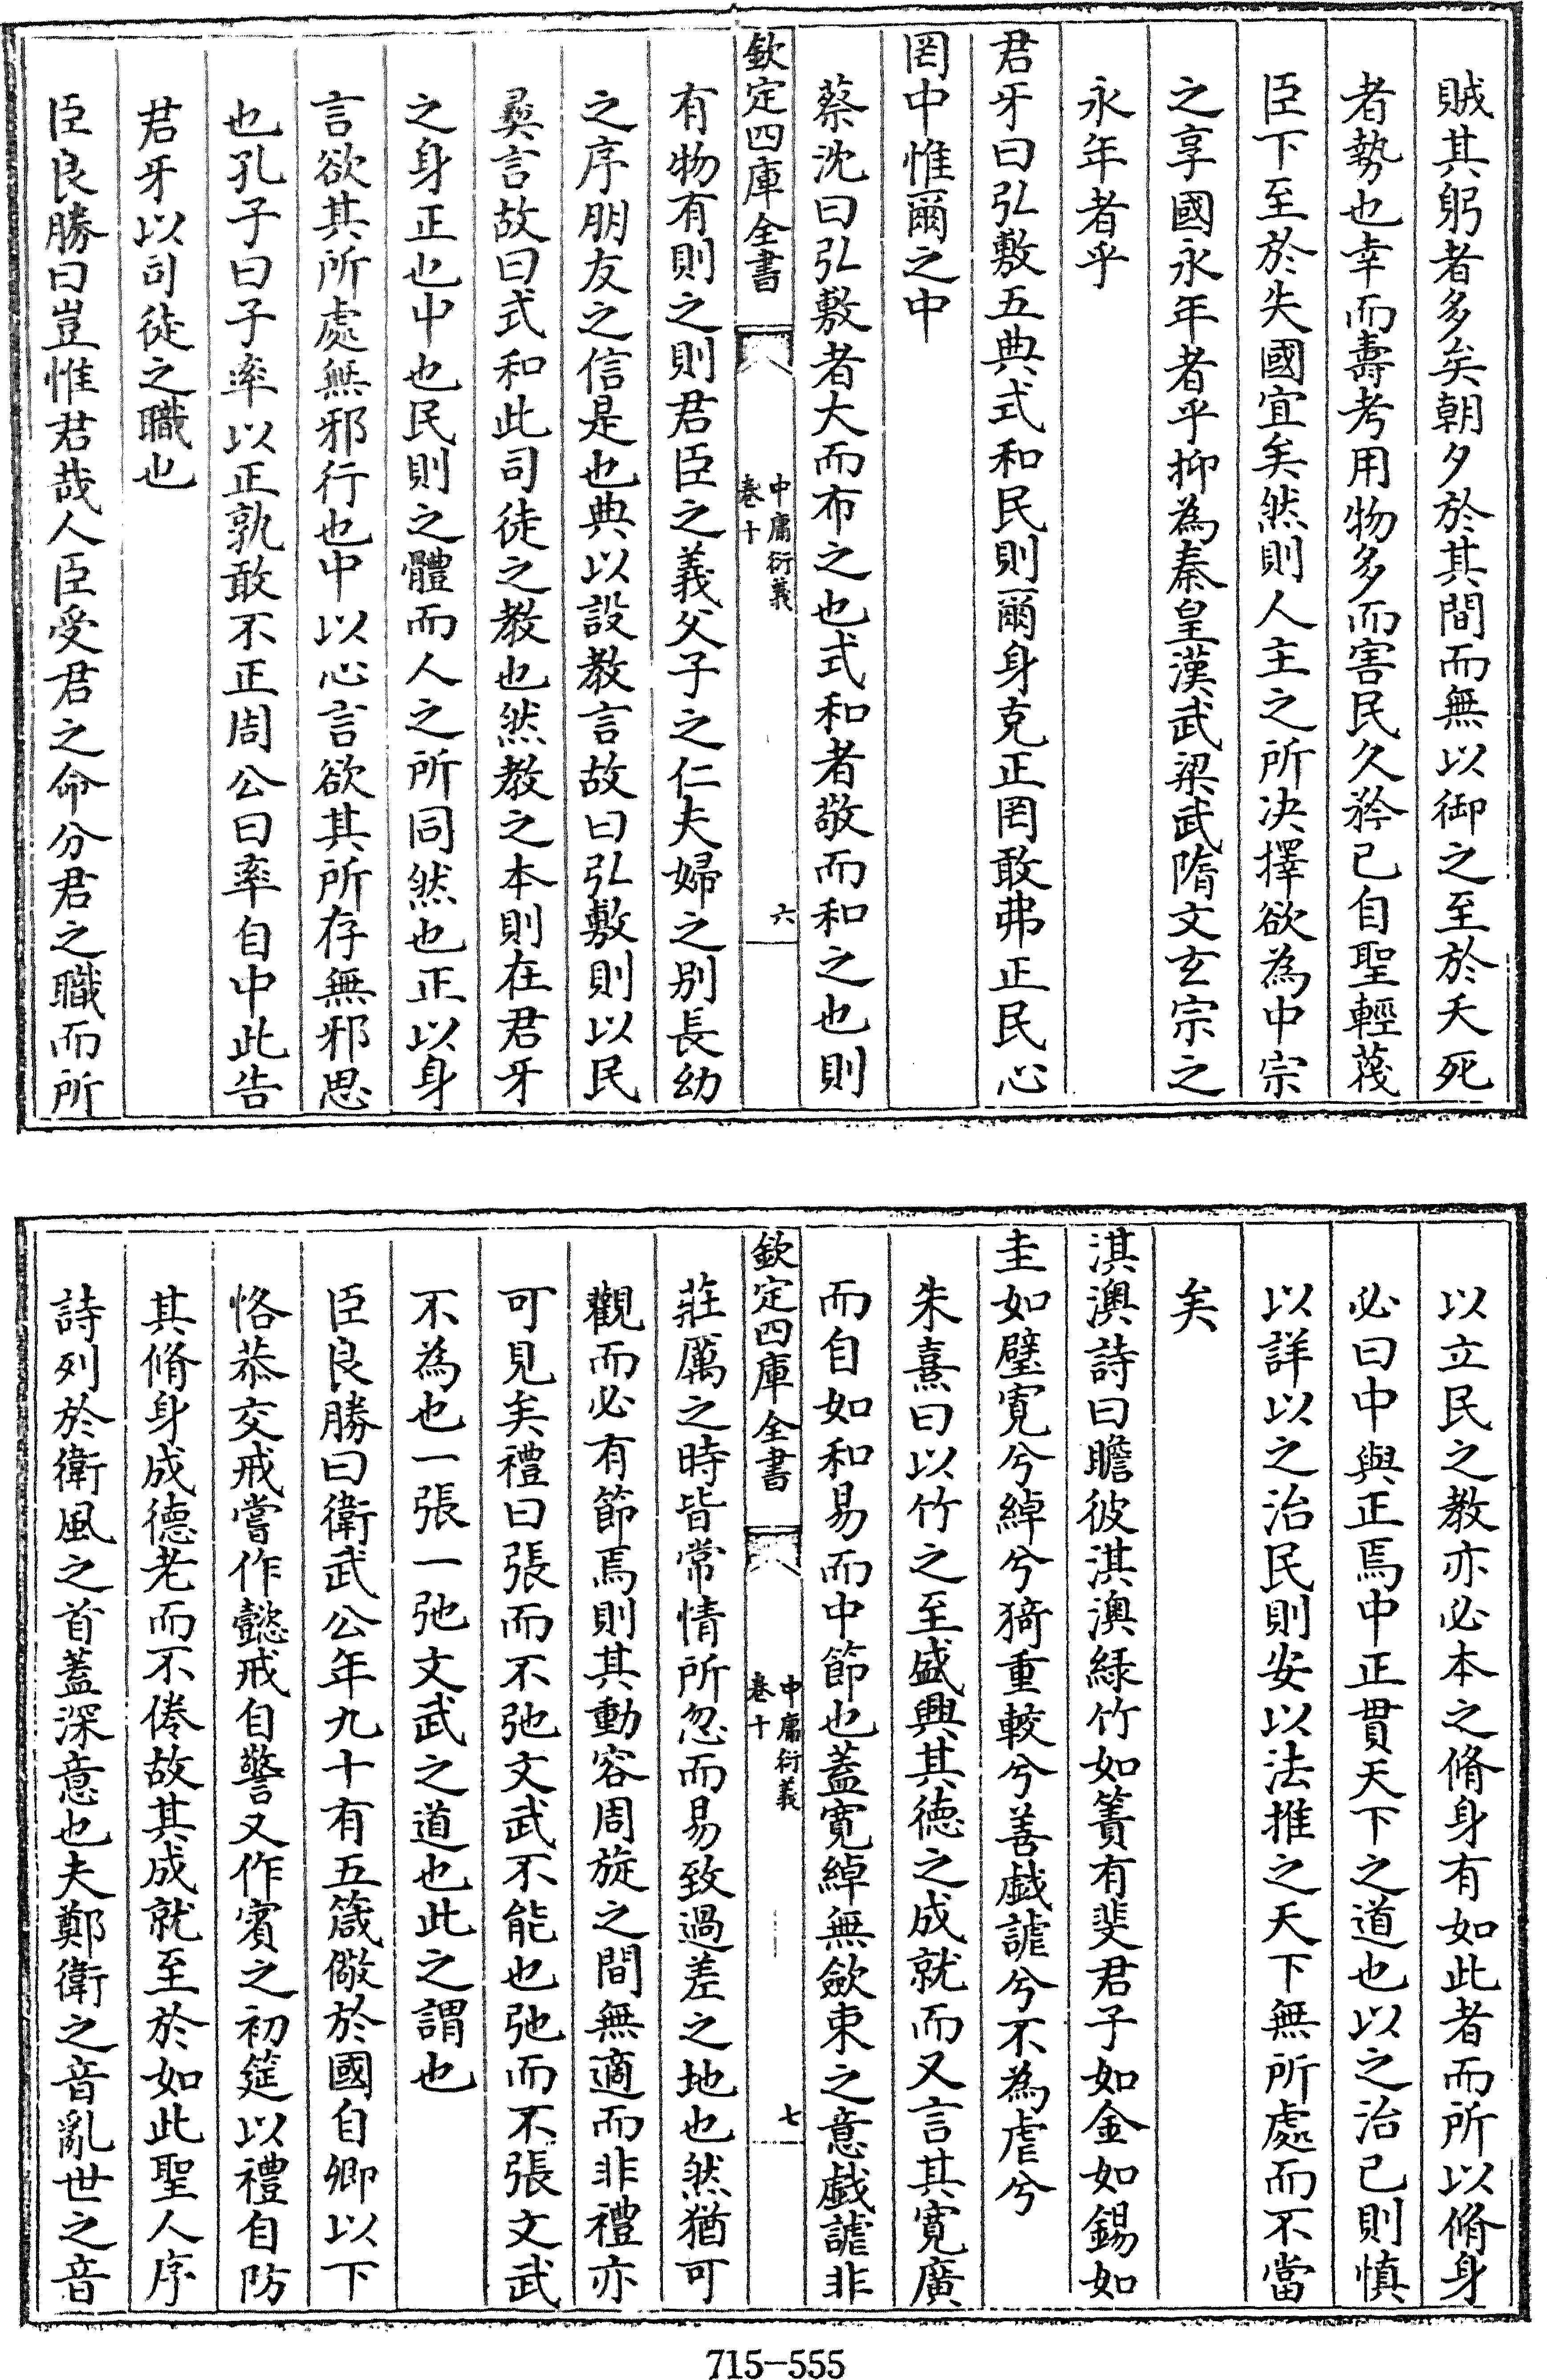 賊其躬者多矣朝夕於其間而無以御之至於夭死
者勢也幸而壽考用物多而害民久矜已自聖輕蔑
臣下至於失國宜矣然則人主之所决擇欲為中宗
之享國永年者乎抑為秦皇漢武梁武隋文玄宗之
永年者乎
君牙曰弘敷五典式和民則爾身克正罔敢弗正民心
罔中惟爾之中
蔡沈曰弘敷者大而布之也式和者敬而和之也則
欽定四庫全書
中庸衍義
卷十
六
有物有則之則君臣之義父子之仁夫婦之别長幼
之序朋友之信是也典以設教言故曰弘敷則以民
彛言故曰式和此司徒之教也然教之本則在君牙
之身正也中也民則之體而人之所同然也正以身
言欲其所處無邪行也中以心言欲其所存無邪思
也孔子曰子率以正孰敢不正周公曰率自中此告
君牙以司徒之職也
臣良勝曰豈惟君哉人臣受君之命分君之職而所
以立民之教亦必本之脩身有如此者而所以脩身
必曰中與正焉中正貫天下之道也以之治己則慎
以詳以之治民則安以法推之天下無所處而不當
矣
淇澳詩曰瞻彼淇澳緑竹如簀有斐君子如金如錫如
圭如璧寛兮綽兮猗重較兮善戱謔兮不為虐兮
朱熹曰以竹之至盛興其徳之成就而又言其寛廣
而自如和易而中節也蓋寛綽無歛束之意戱謔非
欽定四庫全書
中庸衍義
卷十
七
莊厲之時皆常情所忽而易致過差之地也然猶可
觀而必有節焉則其動容周旋之間無適而非禮亦
可見矣禮曰張而不弛文武不能也弛而不張文武
不為也一張一弛文武之道也此之謂也
臣良勝曰衛武公年九十有五箴儆於國自卿以下
恪恭交戒嘗作懿戒自警又作賓之初筵以禮自防
其脩身成德老而不倦故其成就至於如此聖人序
詩列於衛風之首蓋深意也夫鄭衛之音亂世之音
715-555